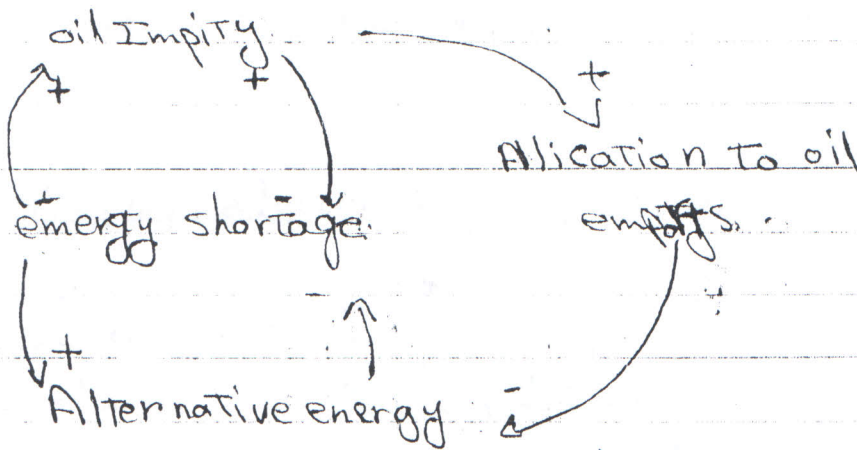 oil Impity
+ + +
Alication to oil
+ -
emergy shortage.
-
+
Alternative energy -